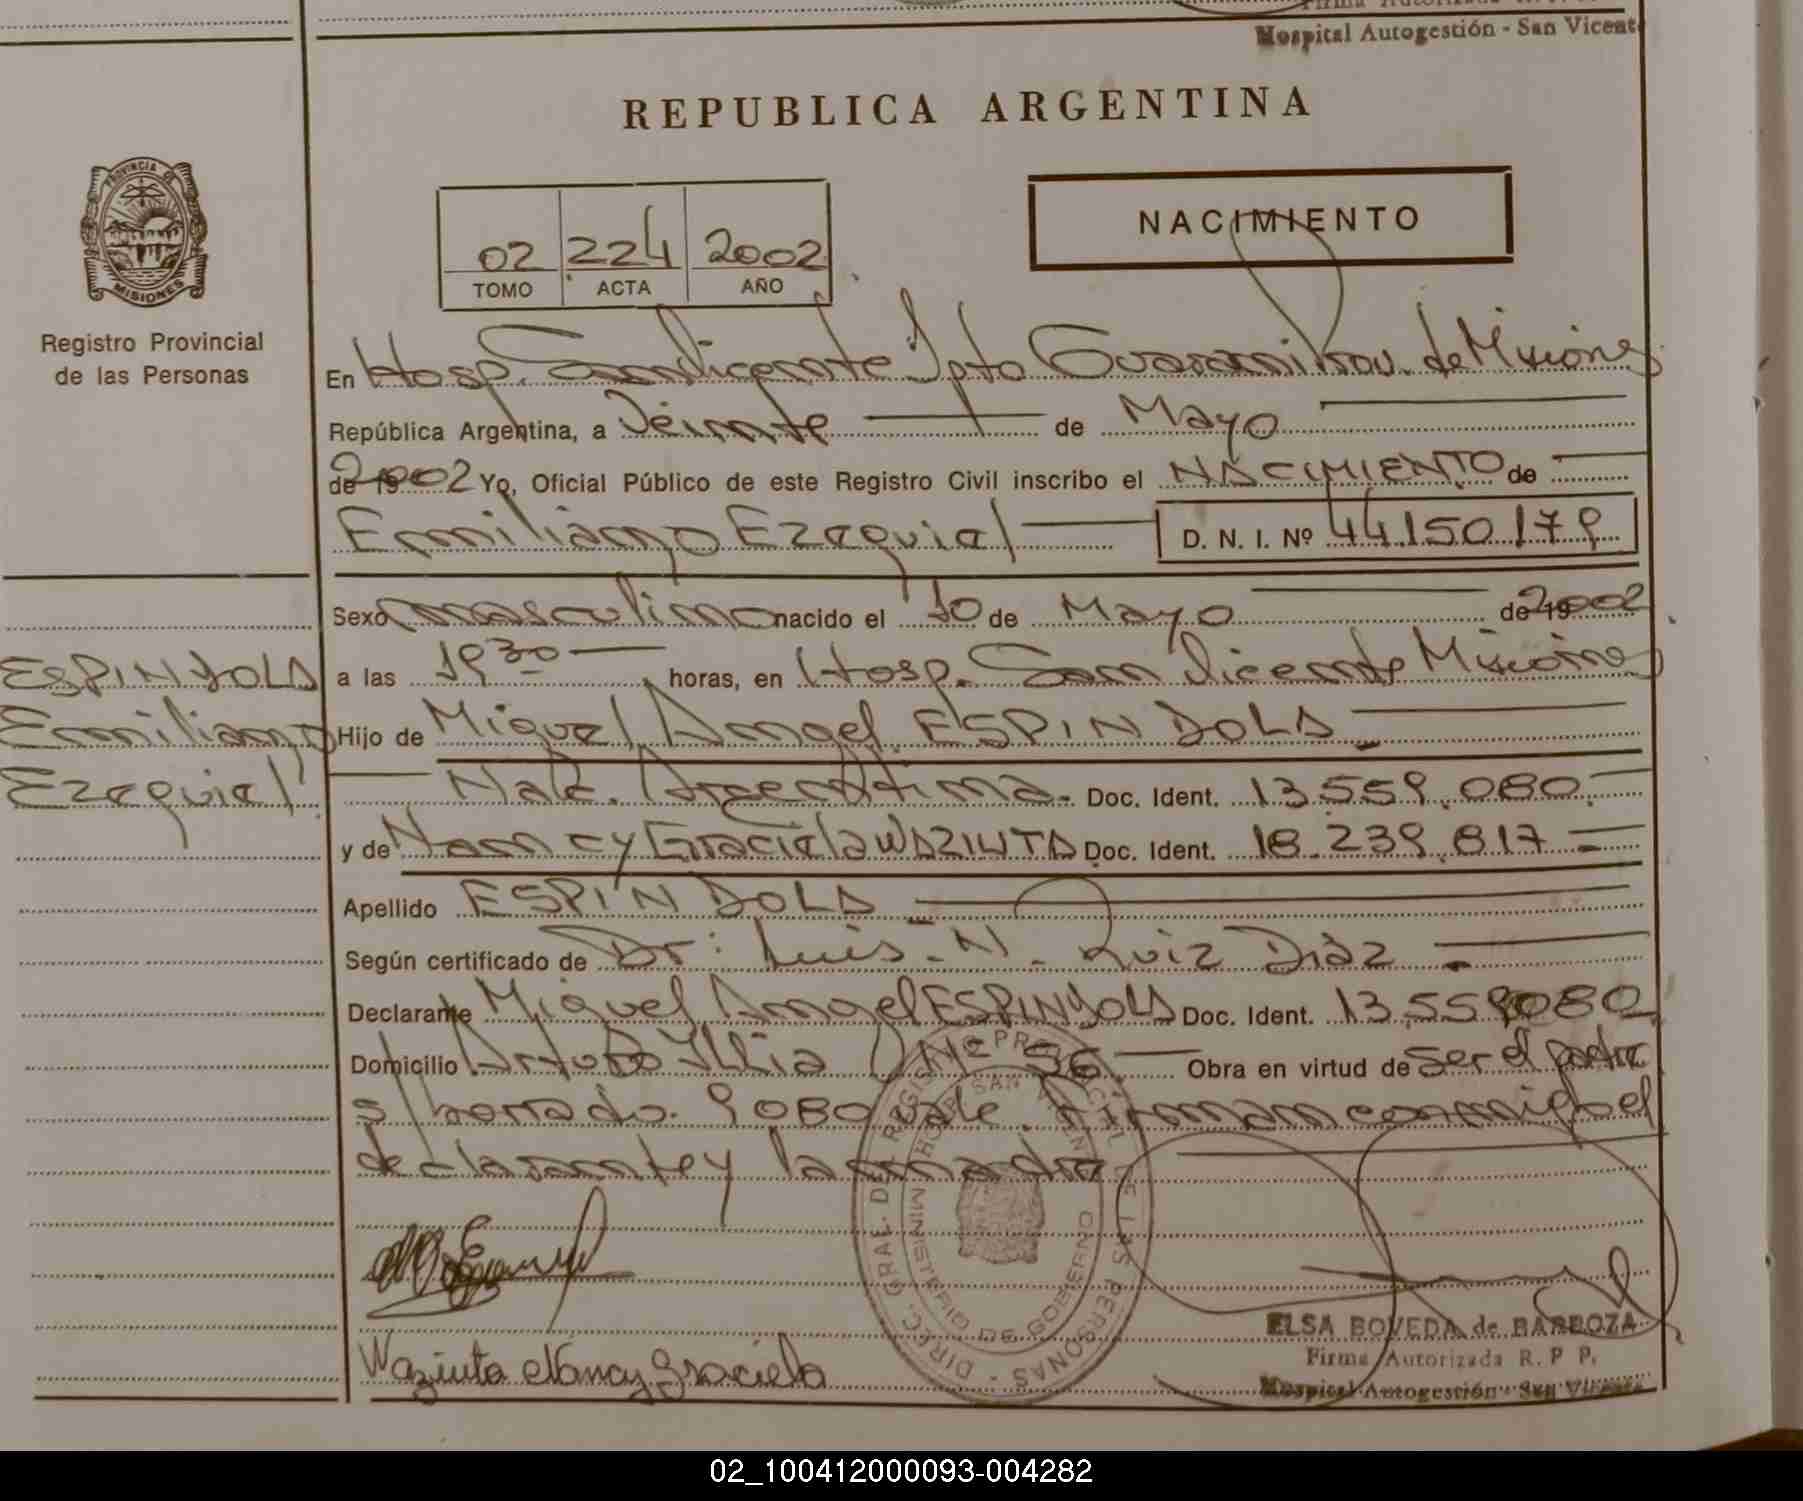 Hospital Autogestión - San Vicente
REPUBLICA ARGENTINA
PROVINCIA DE
MISIONES
Registro Provincial
de las Personas
02 224 2002
TOMO ACTA AÑO
NACIMIENTO
En Hosp. San Vicente Dpto Guarani Prov. de Misiones
República Argentina, a Veinte de Mayo
de 19 2002 Yo, Oficial Público de este Registro Civil inscribo el NACIMIENTO de
Emiliano Ezequiel D. N. I. Nº 44.150.179
Sexo masculino nacido el 10 de Mayo de 19 2002
a las 19 30 horas, en Hosp. San Vicente Misiones
ESPINDOLA
Emiliano
Ezequiel
Hijo de Miguel Angel ESPINDOLA
Nac. Argentina. Doc. Ident. 13.559.080.
y de Nancy Graciela WAZIUTA Doc. Ident. 18.239.817
Apellido ESPINDOLA
Según certificado de Dr: Luis. N. Ruiz Diaz
Declarante Miguel Angel ESPINDOLA Doc. Ident. 13.559.080
Domicilio Arturo Illia Nº 56 Obra en virtud de ser el padre
s/borrado. 9080 vale. Firman conmigo el
declarante y la madre
DIREC. GRAL. DEL REGISTRO PROVINCIAL DE LAS PERSONAS
MINISTERIO DE GOBIERNO
HOSP. SAN VICENTE
Waziuta Nancy Graciela
ELSA BOVEDA de BARBOZA
Firma Autorizada R. P. P.
Hospital Autogestión - San Vicente
02_100412000093-004282